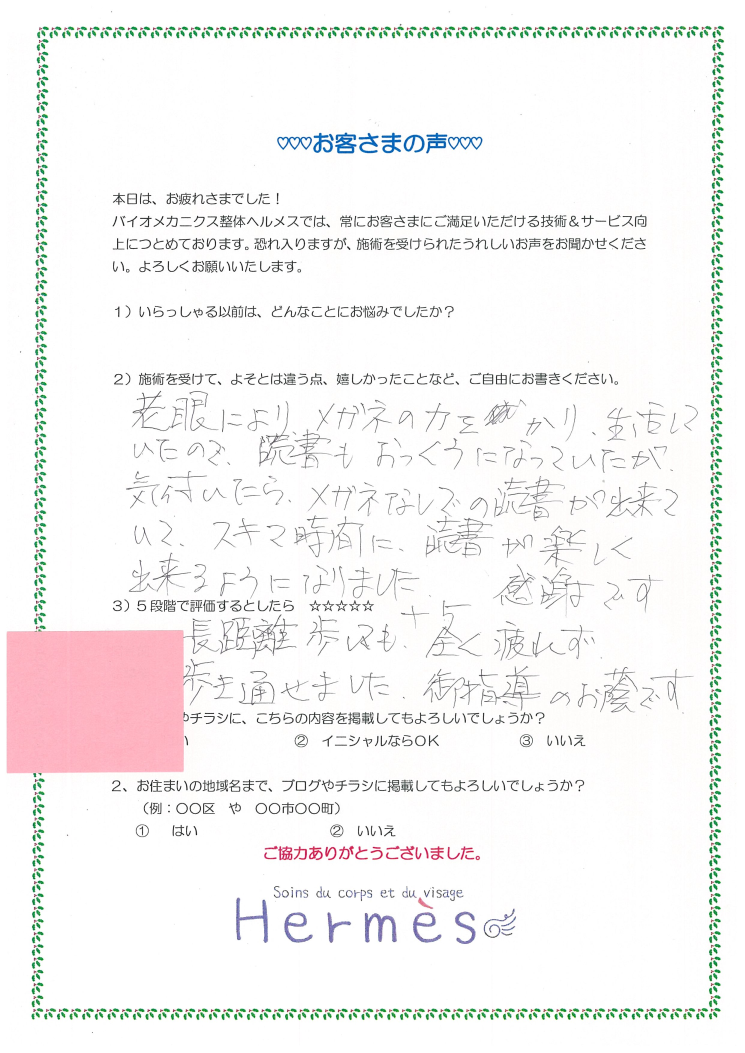 ♡♡♡お客さまの声♡♡♡
本日は、お疲れさまでした！
バイオメカニクス整体ヘルメスでは、常にお客さまにご満足いただける技術＆サービス向
上につとめております。恐れ入りますが、施術を受けられたうれしいお声をお聞かせくださ
い。よろしくお願いいたします。
1）いらっしゃる以前は、どんなことにお悩みでしたか？
2）施術を受けて、よそとは違う点、嬉しかったことなど、ご自由にお書きください。
老眼により、メガネの力をかり、生活して
いたので、読書もおっくうになっていたが、
気付いたら、メガネなしでの読書が出来て
いて、スキマ時間に、読書が楽しく
出来るようになりました。　感謝です
3）5段階で評価するとしたら　☆☆☆☆☆ +5
長距離歩いても、全く疲れず、
歩き通せました。御指導のお蔭です。
やチラシに、こちらの内容を掲載してもよろしいでしょうか？
い　②　イニシャルならOK　③　いいえ
2、お住まいの地域名まで、ブログやチラシに掲載してもよろしいでしょうか？
（例：〇〇区　や　〇〇市〇〇町）
①　はい　②　いいえ
ご協力ありがとうございました。
Soins du corps et du visage
Hermès